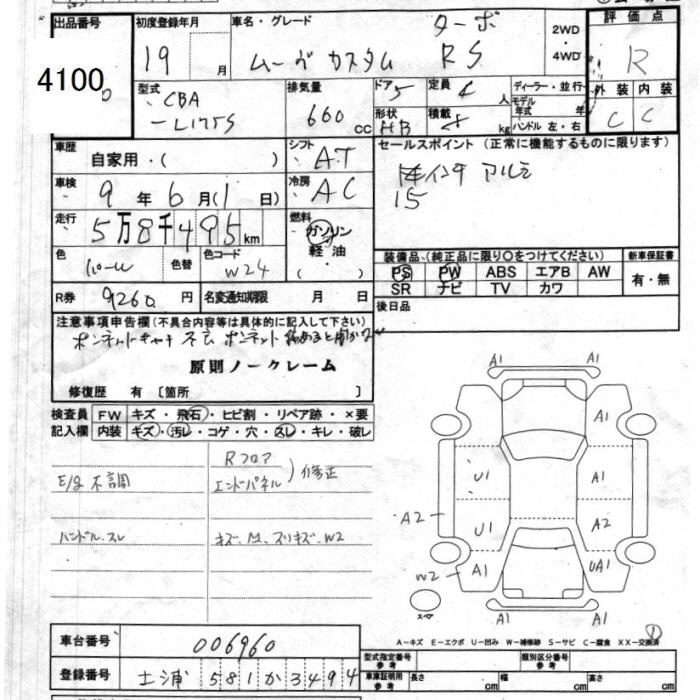 出品番号 初度登録年月 車名・グレード 評価点
4100
19 月 ムーヴ カスタム ターボ RS 2WD ・ 4WD R
型式 CBA-L175S 排気量 660 cc
ドア 5 定員 4 人 ディーラー・並行 外装 内装
形状 HB 積載 kg モデル年式 年 ハンドル 左・右 C C
車歴 自家用・( ) シフト AT
セールスポイント (正常に機能するものに限ります)
インチ アルミ
15
車検 9年6月(1日) 冷房 AC
走行 5万8千495km 燃料 ガソリン 軽油 ( )
色 パール 色替 色コード W24
装備品 (純正品に限り○をつけてください) 新車保証書
PS PW ABS エアB AW 有・無
SR ナビ TV カワ
R券 9260円 名変通知期限 月 日
後日品
注意事項申告欄(不具合内容等は具体的に記入して下さい)
原則ノークレーム
修復歴 有〔箇所 〕
検査員 FW キズ・飛石・ヒビ割・リペア跡・×要
記入欄 内装 キズ・汚レ・コゲ・穴・スレ・キレ・破レ
Rフロア
エンドパネル ) 修正
E/g 不調
ハンドルスレ キズ、M、スリキズ、W2
A1 A1
A1
U1 A1
A2 U1 A2
W2 A1 UA1
スペア A1
A-キズ E-エクボ U-凹み W-補修跡 S-サビ C-腐食 XX-交換済
車台番号 006960
登録番号 土浦 581 か 3494
型式指定番号 参考 類別区分番号 参考
車庫証明用 参考 長さ cm 幅 cm 高さ cm